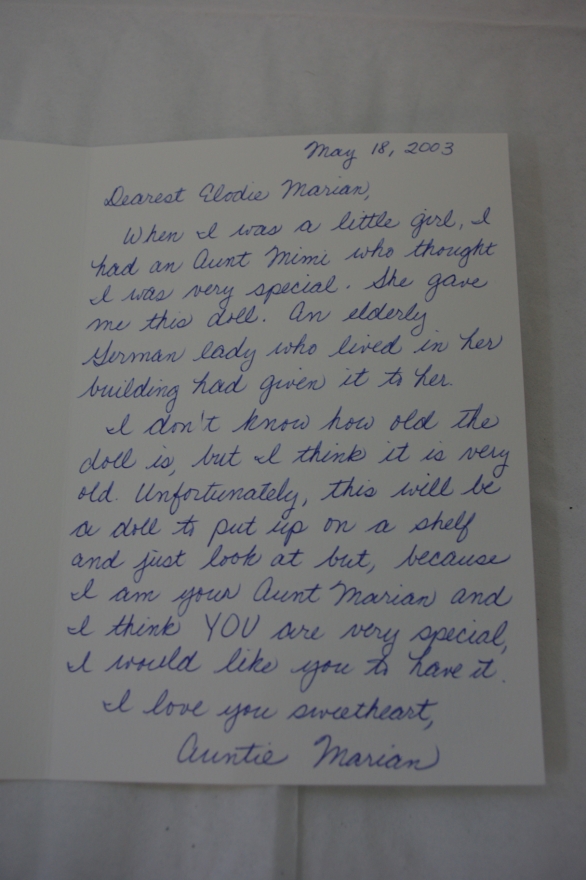 May 18, 2003
Dearest Elodie Marian,
When I was a little girl, I
had an Aunt Mimi who thought
I was very special. She gave
me this doll. An elderly
German lady who lived in her
building had given it to her.
I don't know how old the
doll is, but I think it is very
old. Unfortunately, this will be
a doll to put up on a shelf
and just look at but, because
I am your Aunt Marian and
I think YOU are very special,
I would like you to have it.
I love you sweetheart,
Auntie Marian